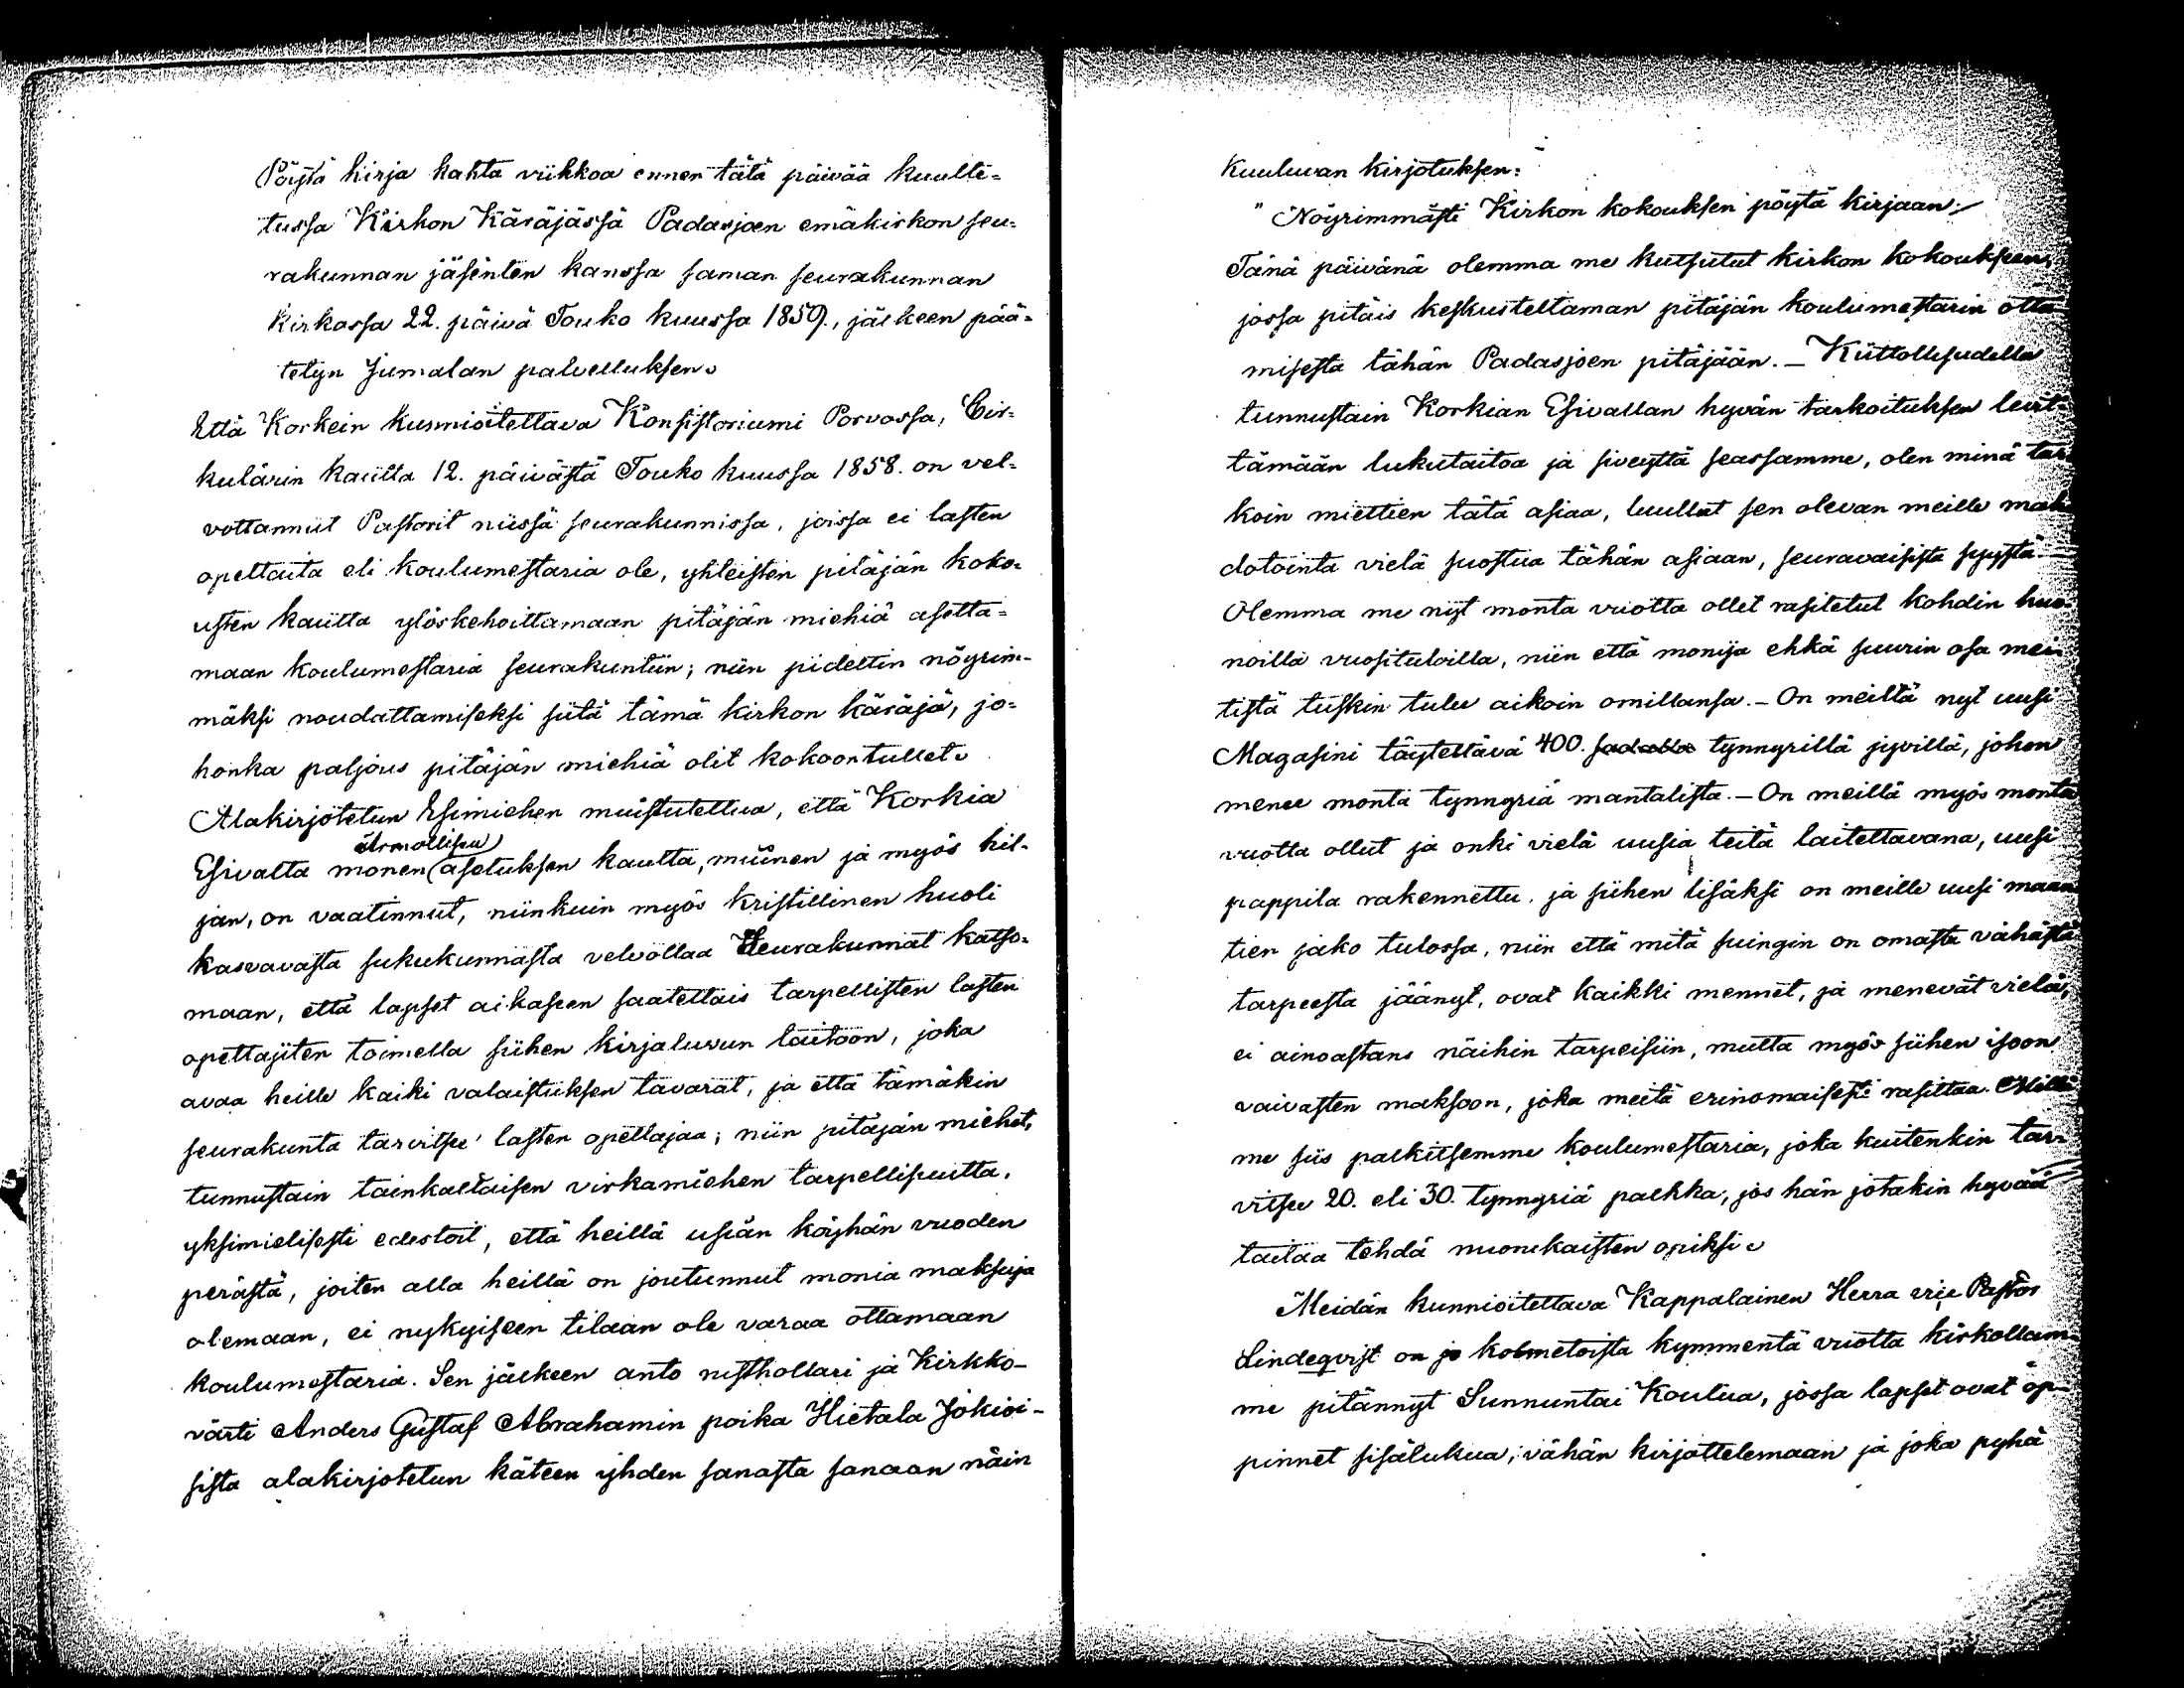 Pöytä kirja kahta viikkoa ennen tätä päivää kuulte-
tussa Kirkon Käräjässä Padasjoen emäkirkon seu-
rakunnan jäsenten kanssa saman seurakunnan
Kirkossa 22. päivä Touko kuussa 1859., jälkeen pää-
tetyn Jumalan palvelluksen.
Että Korkein kunnioitettava Konsistoriumi Porvossa, Cir-
kulärin kautta 12. päivästä Touko kuussa 1858. on vel-
vottannut Pastorit niissä seurakunnissa, joissa ei lasten
opettaita eli koulumestaria ole, yhteisten pitäjän koko-
usten kautta ylöskehoittamaan pitäjän miehiä asetta-
maan koulumestaria seurakuntiin; niin pidettin nöyrim-
mäksi noudattamiseksi siitä tämä kirkon käräjä, jo-
honka paljous pitäjän miehiä olit kokoontullet.
Alakirjotetun Esimiehen muistutettua, että Korkia
Esivalta monen (Armollisen) asetuksen kautta, muinen ja myös hil-
jan, on vaatinnut, niinkuin myös kristillinen huoli
kasvavasta sukukunnasta velvottaa Seurakunnat katso-
maan, että lapset aikaseen saatettais tarpellisten lasten
opettajiten toimella siihen kirjaluvun taitoon, joka
avaa heille kaiki valaistuksen tavarat, ja että tämäkin
seurakunta tarvitsee lasten opettajaa; niin pitäjän miehet,
tunnustain tainkaltaisen virkamiehen tarpellisuutta,
yksimielisesti edestoit, että heillä usian köyhän vuoden
perästä, joiten alla heillä on joutunnut monia maksuja
olemaan, ei nykyiseen tilaan ole varaa ottamaan
koulumestaria. Sen jälkeen anto rusthollari ja Kirkko-
värti Anders Gustaf Abrahamin poika Hietala Jokioi-
sista alakirjotetun käteen yhden sanasta sanaan näin
Kuuluvan kirjotuksen:
"Nöyrimmästi Kirkon kokouksen pöytä kirjaan:
Tänä päivänä olemma me kutsutut kirkon kokouksen,
jossa pitäis keskusteltaman pitäjän koulumestarin otta-
misesta tähän Padasjoen pitäjään. — Kiittollisudella
tunnustain Korkian Esivallan hyvän tarkoituksen levit-
tämään lukutaitoa ja siveyttä seassamme, olen minä tar-
koin miettien tätä asiaa, luullut sen olevan meille mah-
dotointa vielä suostua tähän asiaan, seuravaisista syystä
Olemma me nyt monta vuotta ollet rasitetut kohdin huo-
noilla vuosituloilla, niin että monija ehkä suurin osa mei-
tistä tuskin tulee aikoin omillansa. — On meiltä nyt uusi
Magasini täytettävä 400. sadalla tynnyrillä jyvillä, johon
menee monta tynnyriä mantalista. — On meillä myös monta
vuotta ollut ja onki vielä uusia teitä laitettavana, uusi
pappila rakennettu, ja siihen lisäksi on meille uusi maan
tien jako tulossa, niin että mitä suingin on omasta vähästä
tarpeesta jäänyt, ovat kaikki mennet, ja menevät vielä,
ei ainoastans näihin tarpeisiin, mutta myös siihen isoon
vaivasten maksoon, joka meitä erinomaisesti rasittaa. Millä
me siis palkitsemme koulumestaria, joka kuitenkin tar-
vitsee 20. eli 30. tynnyriä palkka, jos hän jotakin hyvää
taitaa tehdä nuorukaisten opiksi.
Meidän kunnioitettava Kappalainen Herra vrje Pastor
Lindeqvist on jo kolmetoista kymmentä vuotta kirkollam-
me pitännyt Sunnuntai Koulua, jossa lapset ovat op-
pinnet sisälukua, vähän kirjottelemaan ja joka pyhä